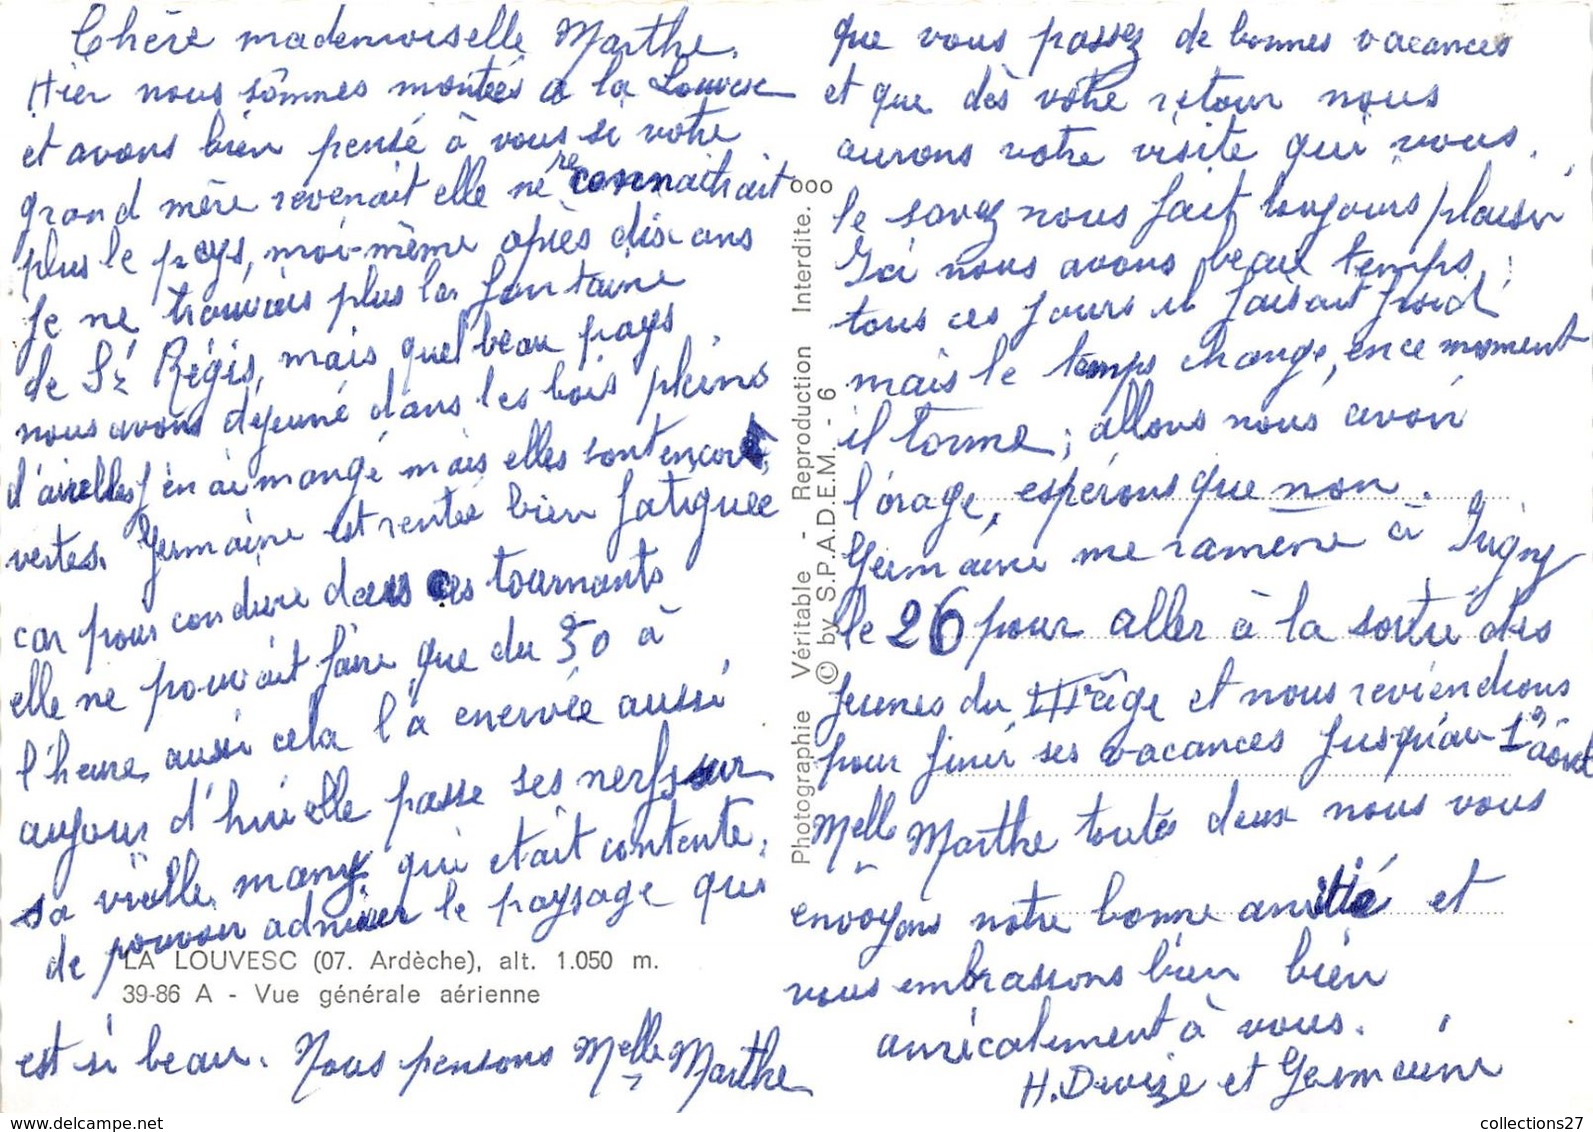 Chère mademoiselle Marthe,
Hier nous sommes montées à la Louvesc
et avons bien pensé à vous si votre
grand mère revenait elle ne reconnaitrait
plus le pays, moi-même après dix ans
je ne trouvais plus la fontaine
de St Régis, mais quel beau pays
nous avons déjeuné dans les bois pleins
d'airelles j'en ai mangé mais elles sont encore
vertes. Germaine est rentée bien fatiguée
car pour conduire dans ces tournants
elle ne pouvait faire que du 50 à
l'heure, aussi cela l'a enervée aussi
aujour d'hui elle passe ses nerfs sur
sa vieille mamy qui était contente,
de pouvoir admirer le paysage qui
LA LOUVESC (07. Ardèche), alt. 1.050 m.
39-86 A - Vue générale aérienne
est si beau. Nous pensons Melle Marthe
Photographie Véritable - Reproduction Interdite. ooo
© by S.P.A.D.E.M. - 6
que vous passez de bonnes vacances
et que dès votre retour nous
aurons votre visite qui vous,
le savez nous fait toujours plaisir
Ici nous avons beau temps,
tous ces jours il faisait froid
mais le temps change, en ce moment
il tonne; allons nous avoir
l'orage, espérons que non.
Germaine me ramène à Irigny
le 26 pour aller à la sortie des
jeunes du IIIe âge et nous reviendrons
pour finir ses vacances jusqu'au 1er août
Melle Marthe toutes deux nous vous
envoyons notre bonne amitié et
vous embrassons bien bien
amicalement à vous.
H. et Germaine
collections27